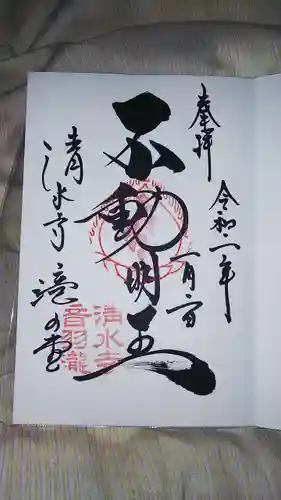 奉拝
令和二年
不動明王
清水寺 滝の堂
清水寺
音羽瀧